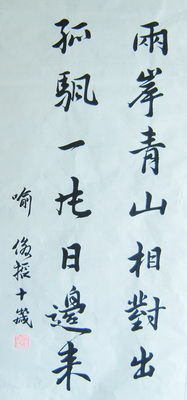 兩岸青山相對出
孤颿一片日邊来
喻振十歲